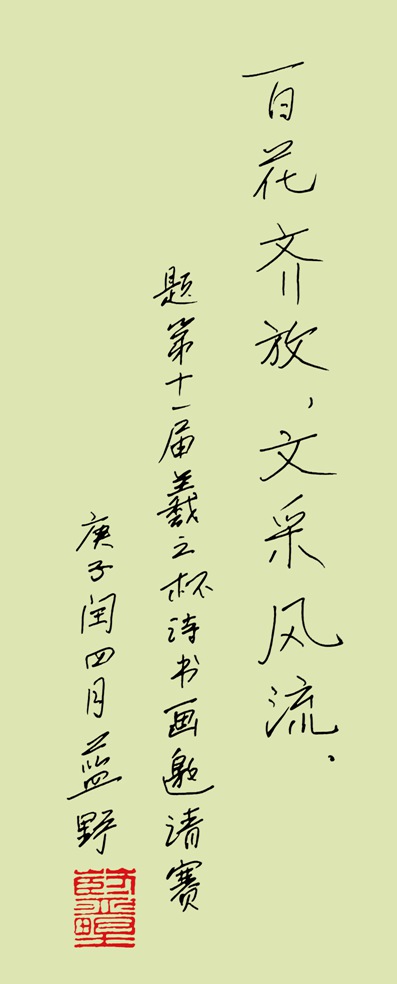 百花齐放，文采风流.
题第十一届羲之杯诗书画邀请赛
庚子闰四月蓝野